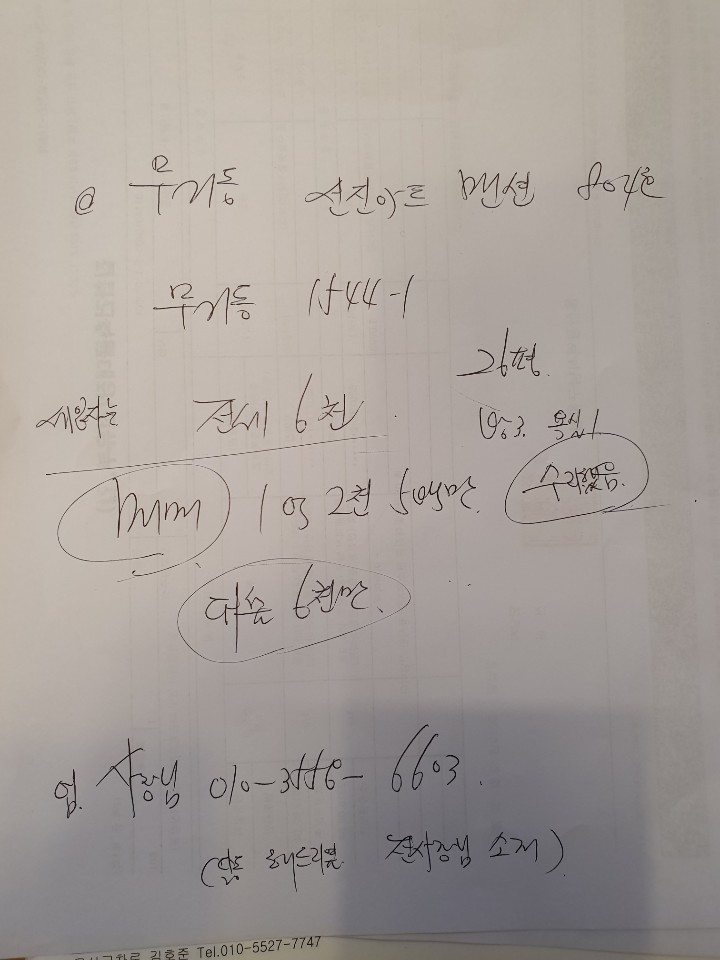 @ 무거동 선진아트 맨션 804호
무거동 1544-1
26평.
세입자는 전세 6천.
방3. 욕실1
매매 1억 2천 5백만. 수리했음.
대출 6천만.
사장님 010- - 6603.
( 전사장님 소개).
김호준 Tel.010-5527-7747